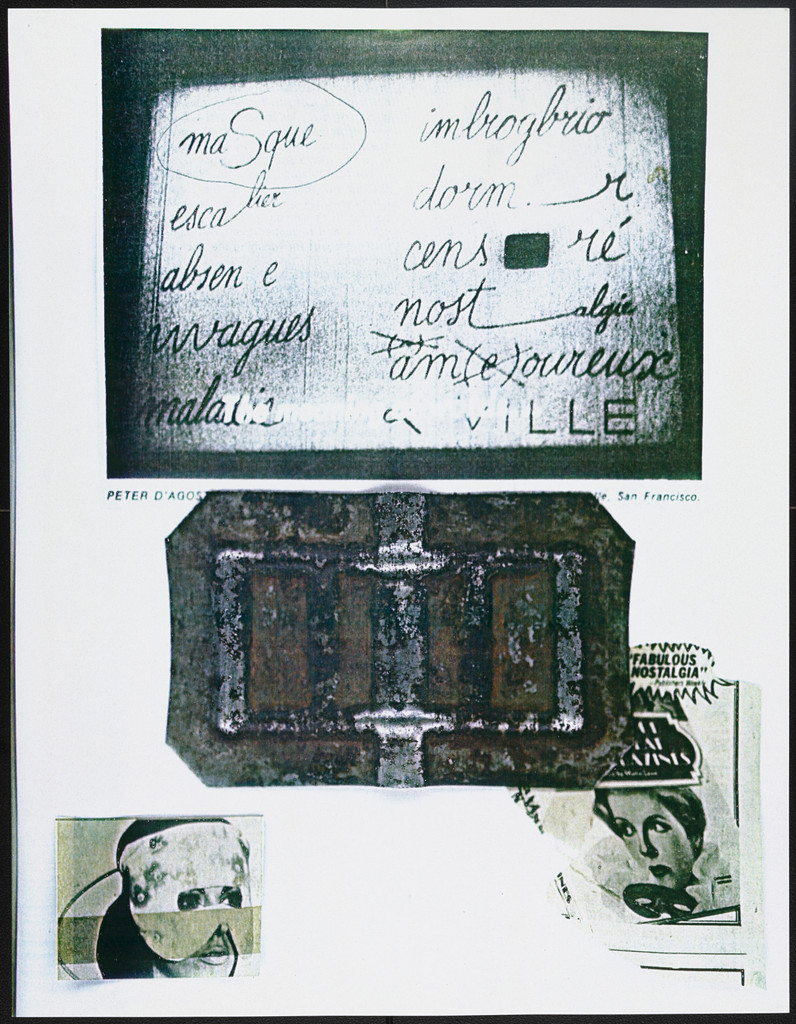 maSque
escalier
absen e
vvagues
imbrogbrio
dorm. r
cens ré
nost algie
am(e)oureux
VILLE
PETER D'AGOS
San Francisco.
"FABULOUS
NOSTALGIA"
Publishers Weekly